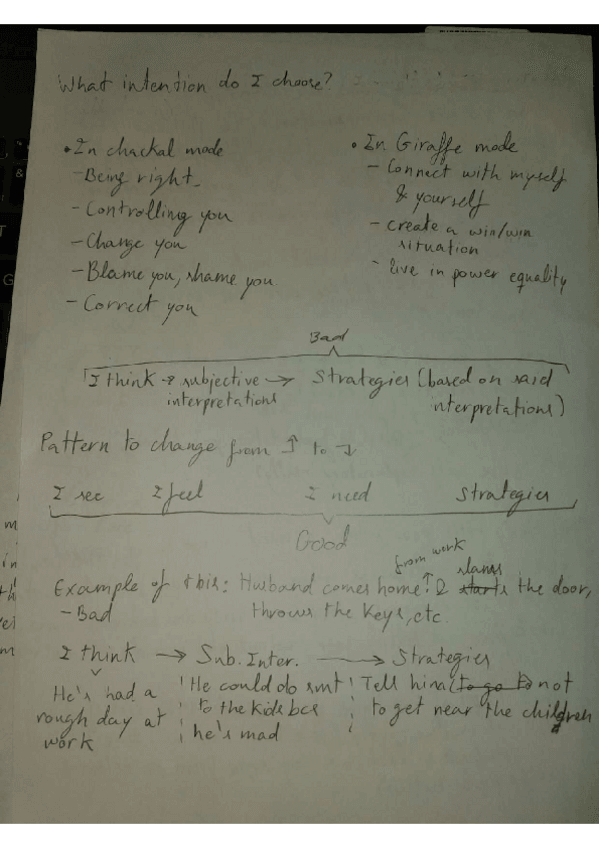 What intention do I choose?
• In chackal mode
- Being right
- Controlling you
- Change you
- Blame you, shame you
- Correct you
• In Giraffe mode
- Connect with myself
& yourself
- create a win/win
situation
- live in power equality
Bad
I think → subjective → Strategies (based on said
interpretations interpretations)
Pattern to change from ↑ to ↓
I see I feel I need Strategies
Good
from work
Example of this: Husband comes home↑& slams the door,
- Bad throws the keys, etc.
I think → Sub. Inter. → Strategies
He's had a He could do smt Tell him to not
rough day at to the kids bcs to get near the children
work he's mad